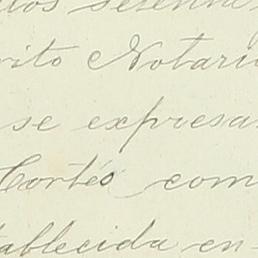 ros sesenta
rito Notario
se expresa
Cortés com
tablecida en-